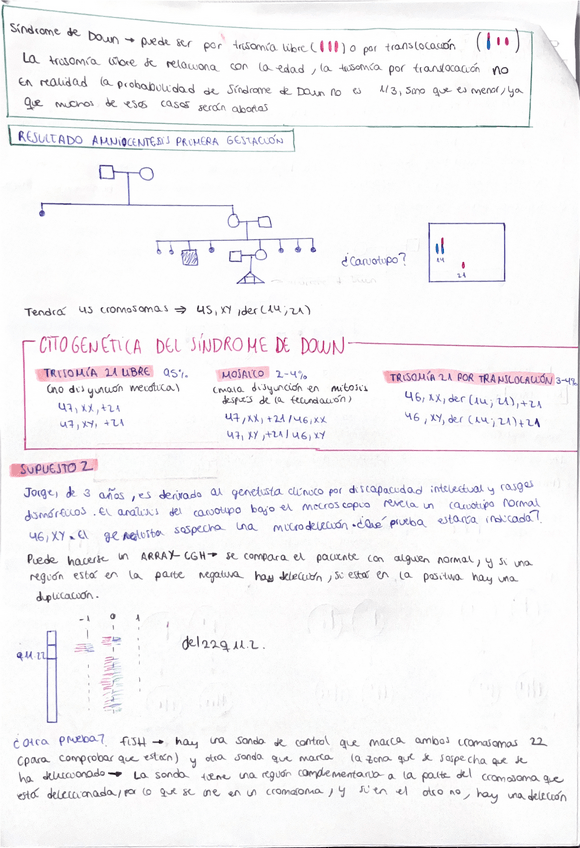 Síndrome de Down → puede ser por trisomía libre (III) o por translocación (III)
La trisomía libre se relaciona con la edad, la trisomía por translocación no
En realidad la probabilidad de Síndrome de Down no es 1/3, sino que es menor, ya
que muchos de esos casos serán abortos
RESULTADO AMNIOCENTESIS PRIMERA GESTACIÓN
¿Cariotipo?
14
21
Tendrá 45 cromosomas ⇒ 45, XY, der(14;21)
CITOGENÉTICA DEL SÍNDROME DE DOWN
TRISOMÍA 21 LIBRE 95%
(no disyunción meiótica)
47, XX, +21
47, XY, +21
MOSAICO 2-4%
(mala disyunción en mitosis
después de la fecundación)
47, XX, +21 / 46, XX
47, XY, +21 / 46, XY
TRISOMÍA 21 POR TRANSLOCACIÓN 3-4%
46, XX, der (14; 21), +21
46, XY, der (14; 21) +21
SUPUESTO 2
Jorge, de 3 años, es derivado al genetista clínico por discapacidad intelectual y rasgos
dismórficos. El análisis del cariotipo bajo el microscopio revela un cariotipo normal
46, XY. El genetista sospecha una microdeleción. ¿Qué prueba estaría indicada?
Puede hacerse un ARRAY-CGH → se compara el paciente con alguien normal, y si una
región está en la parte negativa hay deleción, si está en la positiva hay una
duplicación.
-1 0 1
q11.22
del22q11.2.
¿Otra prueba? FISH → hay una sonda de control que marca ambos cromosomas 22
(para comprobar que están) y otra sonda que marca la zona que se sospecha que se
ha deleccionado → La sonda tiene una región complementaria a la parte del cromosoma que
está deleccionada, por lo que se une en un cromosoma, y si en el otro no, hay una deleción